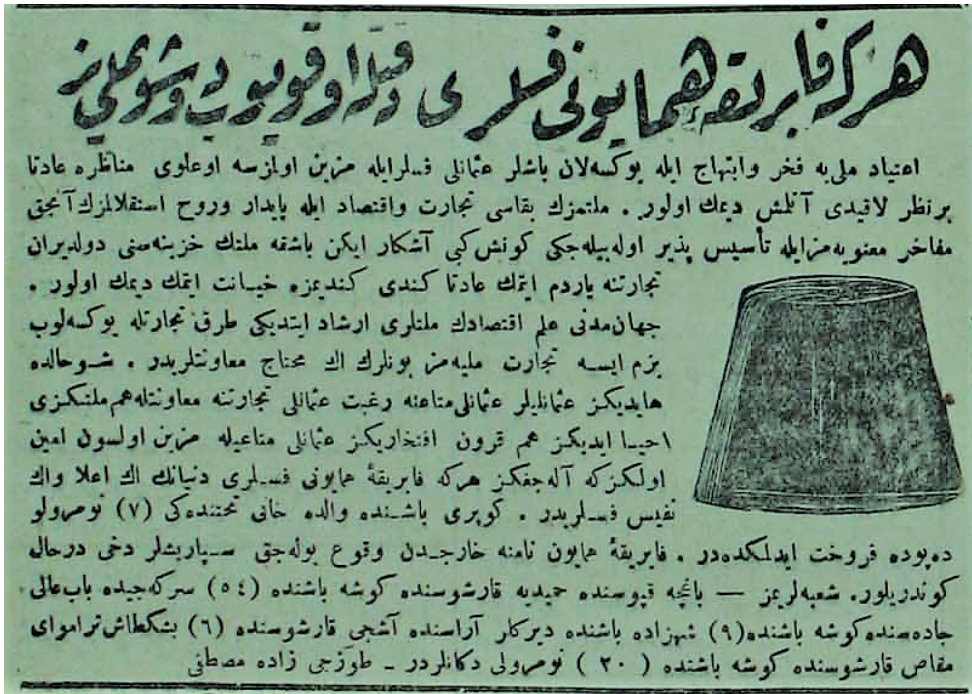 هركه فابريقهٔ همايونى فسلرى دقتله اوقويوب دوشونملى يز
اعتياد ملى‌يه فخر وابتهاج ايله يوكسه‌لان باشلر عثمانلى فسلرايله مزين اولمزسه اوعلوى مناظره عادتا
برنظر لاقيدى آتلمش ديمك اولور . ملتمزك بقاسى تجارت واقتصاد ايله پايدار وروح استقلالمزك آنجق
مفاخر معنويه‌مزايله تأسيس پذير اوله‌بيله‌جكى كونش كبى آشكار ايكن باشقه ملتك خزينه‌سنى دولديران
تجارتنه ياردم ايتمك عادتا كندى كنديمزه خيانت ايتمك ديمك اولور .
جهان مدنى علم اقتصادك ملتلرى ارشاد ايتديكى طرق تجارتله يوكسه‌لوب
بزم ايسه تجارت مليه‌مز بونلرك اك محتاج معاونتلريدر . شوحالده
هايديكز عثمانليلر عثمانلى متاعنه رغبت عثمانلى تجارتنه معاونتله هم ملتكزى
احيا ايديكز هم قرون افتخاريكز عثمانلى متاعيله مزين اولسون امين
اولكزكه آله‌جغكز هركه فابريقهٔ همايونى فسلرى دنيانك اك اعلا واك
نفيس فسلريدر . كوپرى باشنده والده خانى تحتنده‌كى (٧) نومرولو
ده‌پوده فروخت ايدلمكده‌در . فابريقهٔ همايون نامنه خارجدن وقوع بوله‌جق سپاريشلر دخى درحال
كوندريلور. شعبه‌لريمز — باغچه قپوسنده حميديه قارشوسنده كوشه باشنده (٥٤) سركه‌جيده باب‌عالى
جاده‌سنده كوشه باشنده (٩) شهزاده باشنده ديركلر آراسنده آشجى قارشوسنده (٦) بشكطاش تراموای
مقاص قارشوسنده كوشه باشنده ( ٢٠ ) نومرولى دكانلردر ـ طوزجى زاده مصطفى